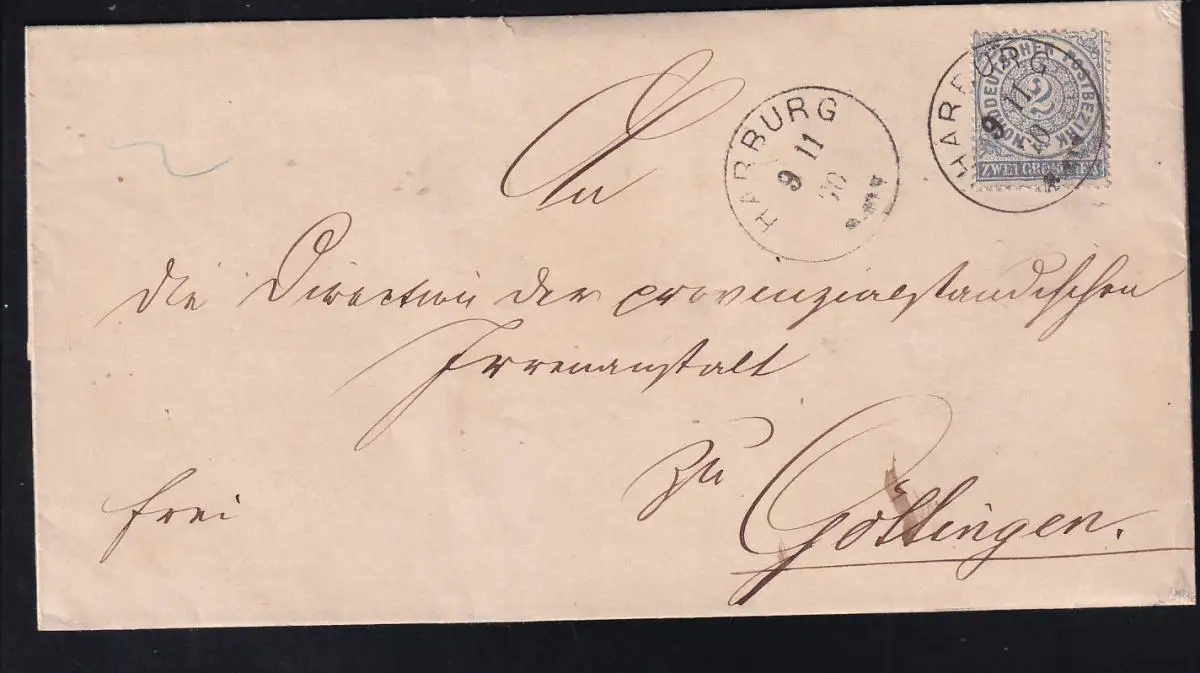 HARBURG
9 11
HARBURG
9 11 70
NORDDEUTSCHER POSTBEZIRK
2
ZWEI GROSCHEN
An
die Direction der provinzialständischen
Irrenanstalt
zu
frei
Göttingen.